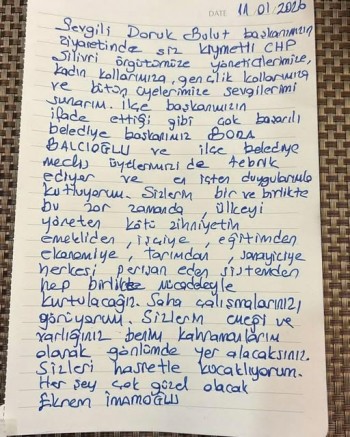 DATE 11.01.2026
Sevgili Doruk Bulut başkanımızın
ziyaretinde siz kıymetli CHP
Silivri örgütümüze yöneticilerimize,
kadın kollarımıza, gençlik kollarımıza
ve bütün üyelerimize sevgilerimi
sunarım. İlçe başkanımızın
ifade ettiği gibi çok başarılı
belediye başkanımız BORA
BALCIOĞLU ve ilçe belediye
meclis üyelerimizi de tebrik
ediyor ve en içten duygularımla
kutluyorum. Sizlerin bir ve birlikte
bu zor zamanda, ülkeyi
yöneten kötü zihniyetin
emekliden, işçiye, eğitimden
ekonomiye, tarımdan, sanayiciye
herkesi perişan eden sistemden
hep birlikte mücadeleyle
kurtulacağız. Saha çalışmalarınızı
görüyorum. Sizlerin emeği ve
varlığınız benim kahramanlarım
olarak gönlümde yer alacaksınız.
Sizleri hasretle kucaklıyorum.
Her şey çok güzel olacak
Ekrem İMAMOĞLU